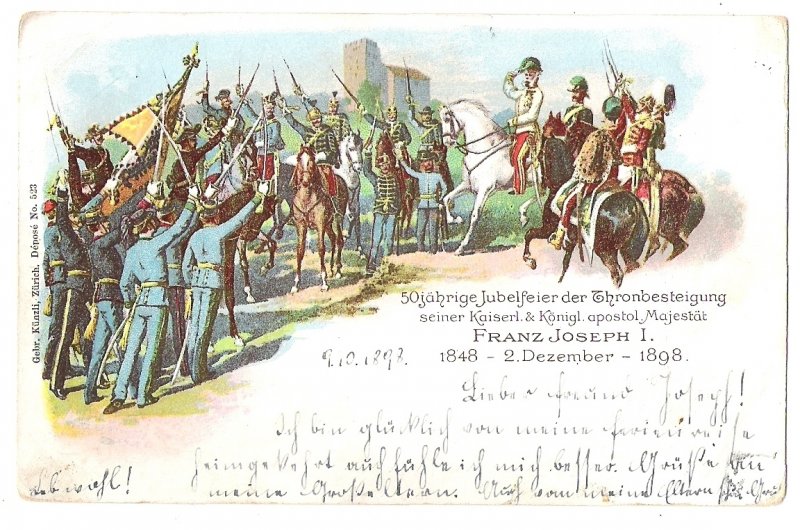 50jährige Jubelfeier der Thronbesteigung
seiner Kaiserl. & Königl. apostol. Majestät
FRANZ JOSEPH I.
1848 - 2. Dezember - 1898.
Gebr. Künzli, Zürich. Déposé No. 523
9.10.1898.
Lieber Freund Joseph!
Ich bin glücklich von meine Ferienreise
heimgekehrt auch fühle ich mich besser. Grüße an
meine Großeltern. Auch vom meine Eltern
Lebwohl!